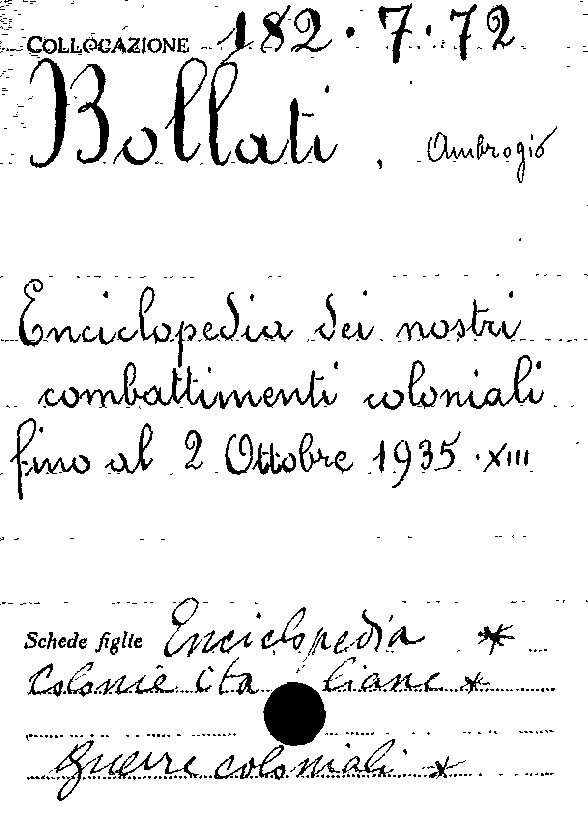 COLLOCAZIONE 182.7.72
Bollati, Ambrogio
Enciclopedia dei nostri
combattimenti coloniali
fino al 2 Ottobre 1935.XIII
Schede figlie Enciclopedia *
Colonie italiane *
Guerre coloniali *